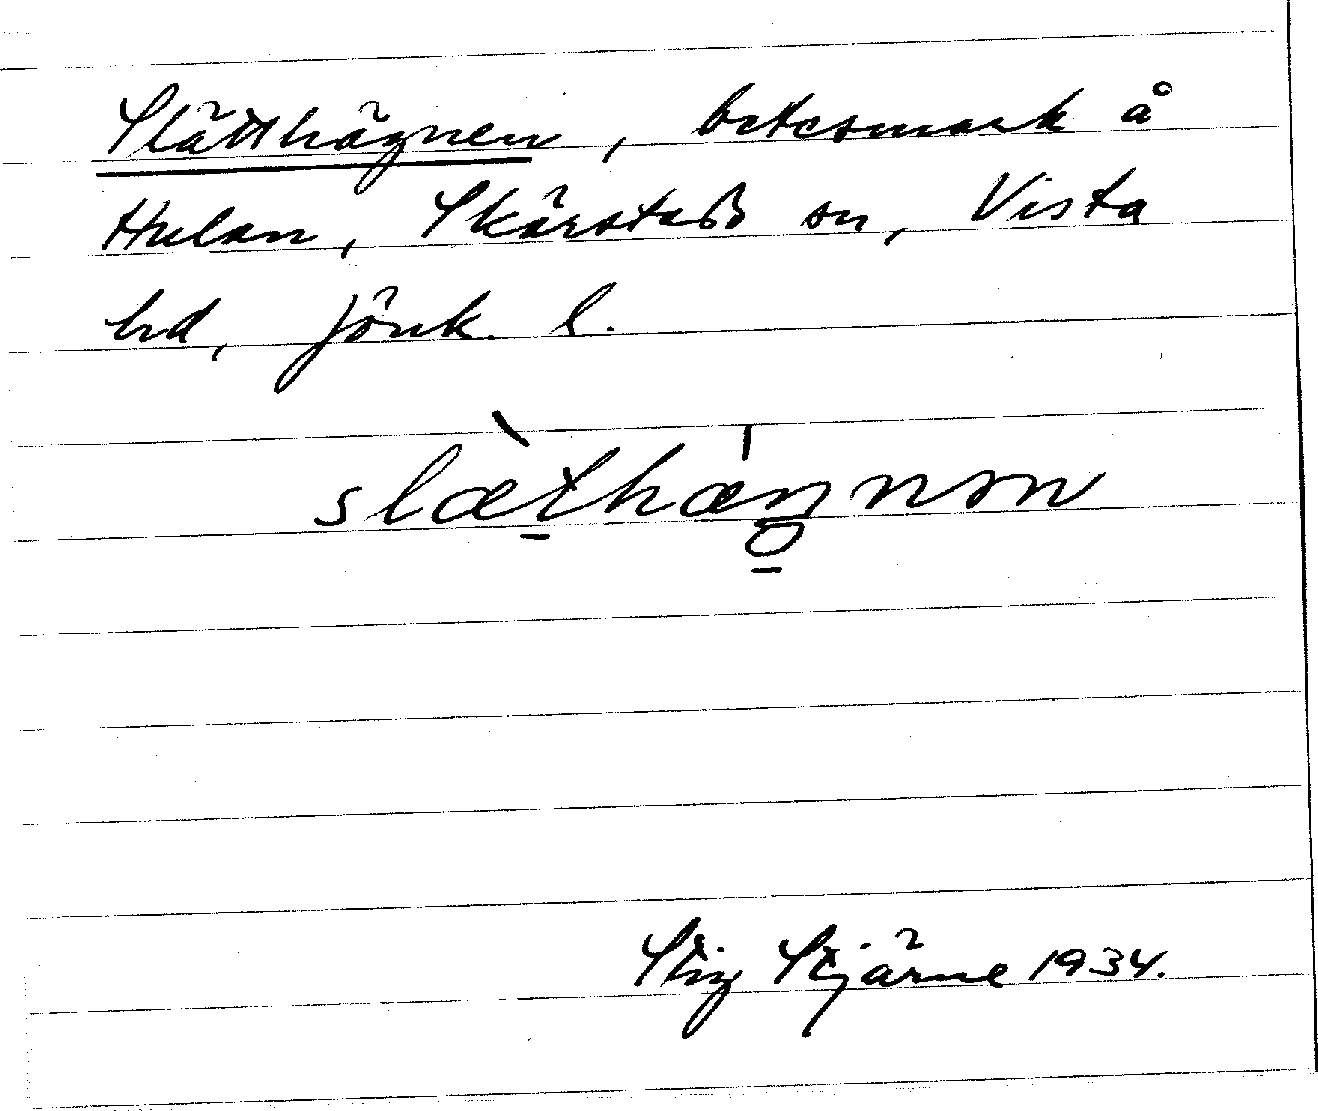 Slätthägnen, betesmark å
Hulan, Skärstads sn, Vista
hd, Jönk. l.
slæ̀t̠hæ̍ŋnən
Stig Stjärne 1934.